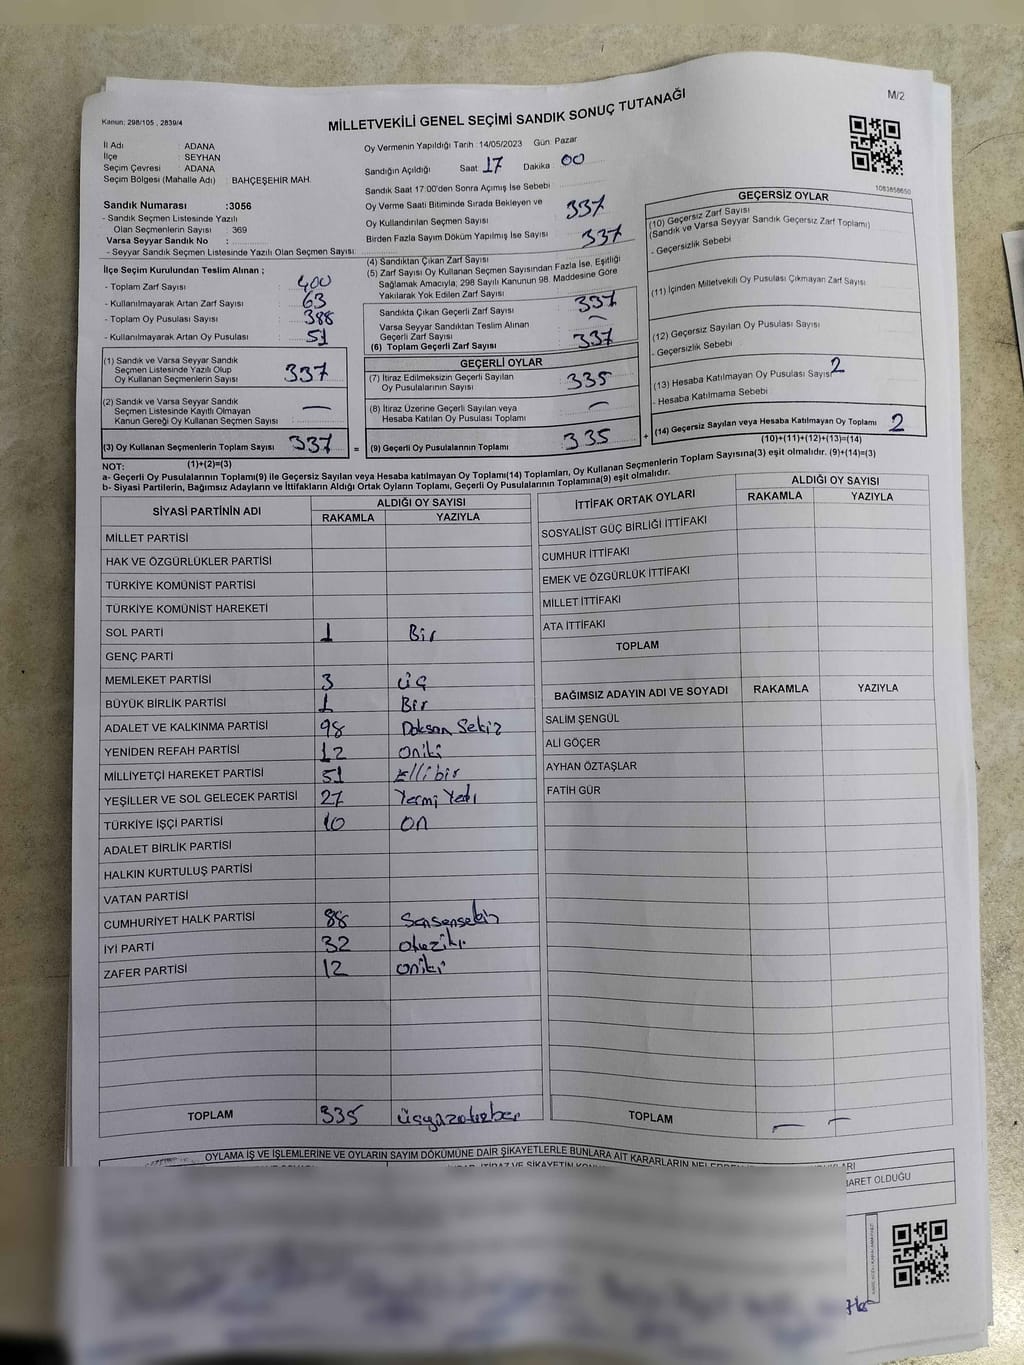 M/2
Kanun: 298/105 , 2839/4
MİLLETVEKİLİ GENEL SEÇİMİ SANDIK SONUÇ TUTANAĞI
İl Adı : ADANA
İlçe : SEYHAN
Seçim Çevresi : ADANA
Seçim Bölgesi (Mahalle Adı) : BAHÇEŞEHİR MAH.
Sandık Numarası :3056
- Sandık Seçmen Listesinde Yazılı
Olan Seçmenlerin Sayısı : 369
Varsa Seyyar Sandık No :
- Seyyar Sandık Seçmen Listesinde Yazılı Olan Seçmen Sayısı :
Oy Vermenin Yapıldığı Tarih : 14/05/2023 Gün: Pazar
Sandığın Açıldığı Saat 17 Dakika 00
Sandık Saat 17:00'den Sonra Açımış İse Sebebi
Oy Verme Saati Bitiminde Sırada Bekleyen ve
Oy Kullandırılan Seçmen Sayısı 337
Birden Fazla Sayım Döküm Yapılmış İse Sayısı
1083858650
İlçe Seçim Kurulundan Teslim Alınan ;
- Toplam Zarf Sayısı : 400
- Kullanılmayarak Artan Zarf Sayısı : 63
- Toplam Oy Pusulası Sayısı : 388
- Kullanılmayarak Artan Oy Pusulası : 51
(1) Sandık ve Varsa Seyyar Sandık
Seçmen Listesinde Yazılı Olup
Oy Kullanan Seçmenlerin Sayısı 337
(2) Sandık ve Varsa Seyyar Sandık
Seçmen Listesinde Kayıtlı Olmayan
Kanun Gereği Oy Kullanan Seçmen Sayısı —
(3) Oy Kullanan Seçmenlerin Toplam Sayısı 337 =
(1)+(2)=(3)
(4) Sandıktan Çıkan Zarf Sayısı 337
(5) Zarf Sayısı Oy Kullanan Seçmen Sayısından Fazla İse, Eşitliği
Sağlamak Amacıyla; 298 Sayılı Kanunun 98. Maddesine Göre
Yakılarak Yok Edilen Zarf Sayısı
Sandıkta Çıkan Geçerli Zarf Sayısı 337
Varsa Seyyar Sandıktan Teslim Alınan
Geçerli Zarf Sayısı —
(6) Toplam Geçerli Zarf Sayısı 337
GEÇERLİ OYLAR
(7) İtiraz Edilmeksizin Geçerli Sayılan
Oy Pusulalarının Sayısı 335
(8) İtiraz Üzerine Geçerli Sayılan veya
Hesaba Katılan Oy Pusulası Toplamı —
(9) Geçerli Oy Pusulalarının Toplamı 335 +
GEÇERSİZ OYLAR
(10) Geçersiz Zarf Sayısı
(Sandık ve Varsa Seyyar Sandık Geçersiz Zarf Toplamı)
- Geçersizlik Sebebi
(11) İçinden Milletvekili Oy Pusulası Çıkmayan Zarf Sayısı
(12) Geçersiz Sayılan Oy Pusulası Sayısı
- Geçersizlik Sebebi
(13) Hesaba Katılmayan Oy Pusulası Sayısı 2
- Hesaba Katılmama Sebebi
(14) Geçersiz Sayılan veya Hesaba Katılmayan Oy Toplamı 2
(10)+(11)+(12)+(13)=(14)
NOT:
a- Geçerli Oy Pusulalarının Toplamı(9) ile Geçersiz Sayılan veya Hesaba katılmayan Oy Toplamı(14) Toplamları, Oy Kullanan Seçmenlerin Toplam Sayısına(3) eşit olmalıdır. (9)+(14)=(3)
b- Siyasi Partilerin, Bağımsız Adayların ve İttifakların Aldığı Ortak Oyların Toplamı, Geçerli Oy Pusulalarının Toplamına(9) eşit olmalıdır.
SİYASİ PARTİNİN ADI ALDIĞI OY SAYISI
RAKAMLA YAZIYLA
MİLLET PARTİSİ
HAK VE ÖZGÜRLÜKLER PARTİSİ
TÜRKİYE KOMÜNİST PARTİSİ
TÜRKİYE KOMÜNİST HAREKETİ
SOL PARTİ 1 Bir
GENÇ PARTİ
MEMLEKET PARTİSİ 3 üç
BÜYÜK BİRLİK PARTİSİ 1 Bir
ADALET VE KALKINMA PARTİSİ 98 Doksan Sekiz
YENİDEN REFAH PARTİSİ 12 oniki
MİLLİYETÇİ HAREKET PARTİSİ 51 Ellibir
YEŞİLLER VE SOL GELECEK PARTİSİ 27 Yermi Yedi
TÜRKİYE İŞÇİ PARTİSİ 10 on
ADALET BİRLİK PARTİSİ
HALKIN KURTULUŞ PARTİSİ
VATAN PARTİSİ
CUMHURİYET HALK PARTİSİ 88
İYİ PARTİ 32
ZAFER PARTİSİ 12 oniki
TOPLAM 335
İTTİFAK ORTAK OYLARI ALDIĞI OY SAYISI
RAKAMLA YAZIYLA
SOSYALİST GÜÇ BİRLİĞİ İTTİFAKI
CUMHUR İTTİFAKI
EMEK VE ÖZGÜRLÜK İTTİFAKI
MİLLET İTTİFAKI
ATA İTTİFAKI
TOPLAM
BAĞIMSIZ ADAYIN ADI VE SOYADI RAKAMLA YAZIYLA
SALİM ŞENGÜL
ALİ GÖÇER
AYHAN ÖZTAŞLAR
FATİH GÜR
TOPLAM — —
OYLAMA İŞ VE İŞLEMLERİNE VE OYLARIN SAYIM DÖKÜMÜNE DAİR ŞİKAYETLERLE BUNLARA AİT KARARLARIN